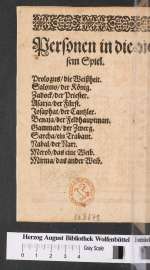 Personen in die
sem Spiel.
Prologus/die Weißheit.
Salomo/der König.
Zadock/der Priester.
Asarja/der Fürst.
Josaphat/der Cantzler.
Benaja/der Feldhauptman.
Hammah/der Zwerg.
Sarcha/ein Trabant.
Nabal/der Narr.
Merob/das eine Weib.
Mirma/das ander Weib.
Herzog August Bibliothek Wolfenbüttel
Gray Scale